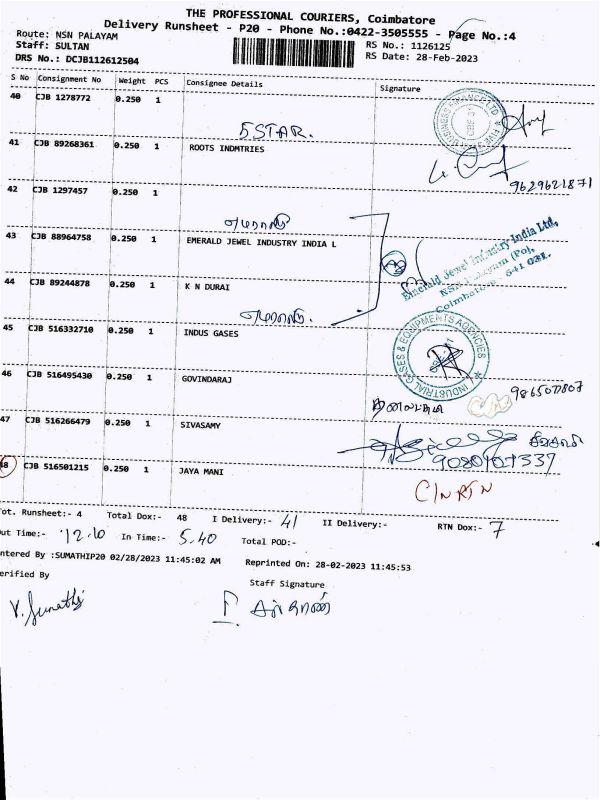 THE PROFESSIONAL COURIERS, Coimbatore
Delivery Runsheet - P20 - Phone No.:0422-3505555 - Page No.:4
Route: NSN PALAYAM
RS No.: 1126125
Staff: SULTAN
RS Date: 28-Feb-2023
DRS No.: DCJB112612504
S No Consignment No Weight PCS Consignee Details Signature
40 CJB 1278772 0.250 1
5 STAR.
41 CJB 89268361 0.250 1 ROOTS INDMTRIES
9629621871
42 CJB 1297457 0.250 1
எமரால்டு
43 CJB 88964758 0.250 1 EMERALD JEWEL INDUSTRY INDIA L
Emerald Jewel Industry India Ltd,
NSN Palayam (Po),
Coimbatore - 641 031.
44 CJB 89244878 0.250 1 K N DURAI
எமரால்டு.
45 CJB 516332710 0.250 1 INDUS GASES
INDUSTRIAL GASES & EQUIPMENTS AGENCIES
46 CJB 516495430 0.250 1 GOVINDARAJ
47 CJB 516266479 0.250 1 SIVASAMY
48 CJB 516501215 0.250 1 JAYA MANI
C/N RTN
Tot. Runsheet:- 4 Total Dox:- 48 I Delivery:- 41 II Delivery:- RTN Dox:- 7
Out Time:- 12.10 In Time:- 5.40 Total POD:-
ntered By :SUMATHIP20 02/28/2023 11:45:02 AM Reprinted On: 28-02-2023 11:45:53
erified By
Staff Signature
V. Sumathi